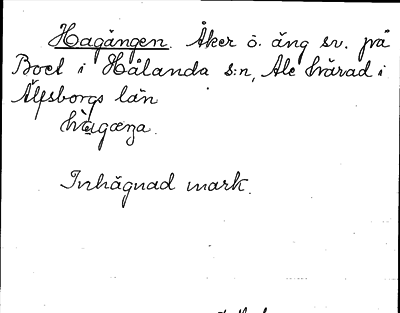 Hagängen. Åker o. äng sv. på
Boet i Hålanda s:n, Ale härad i
Älfsborgs län

Inhägnad mark.